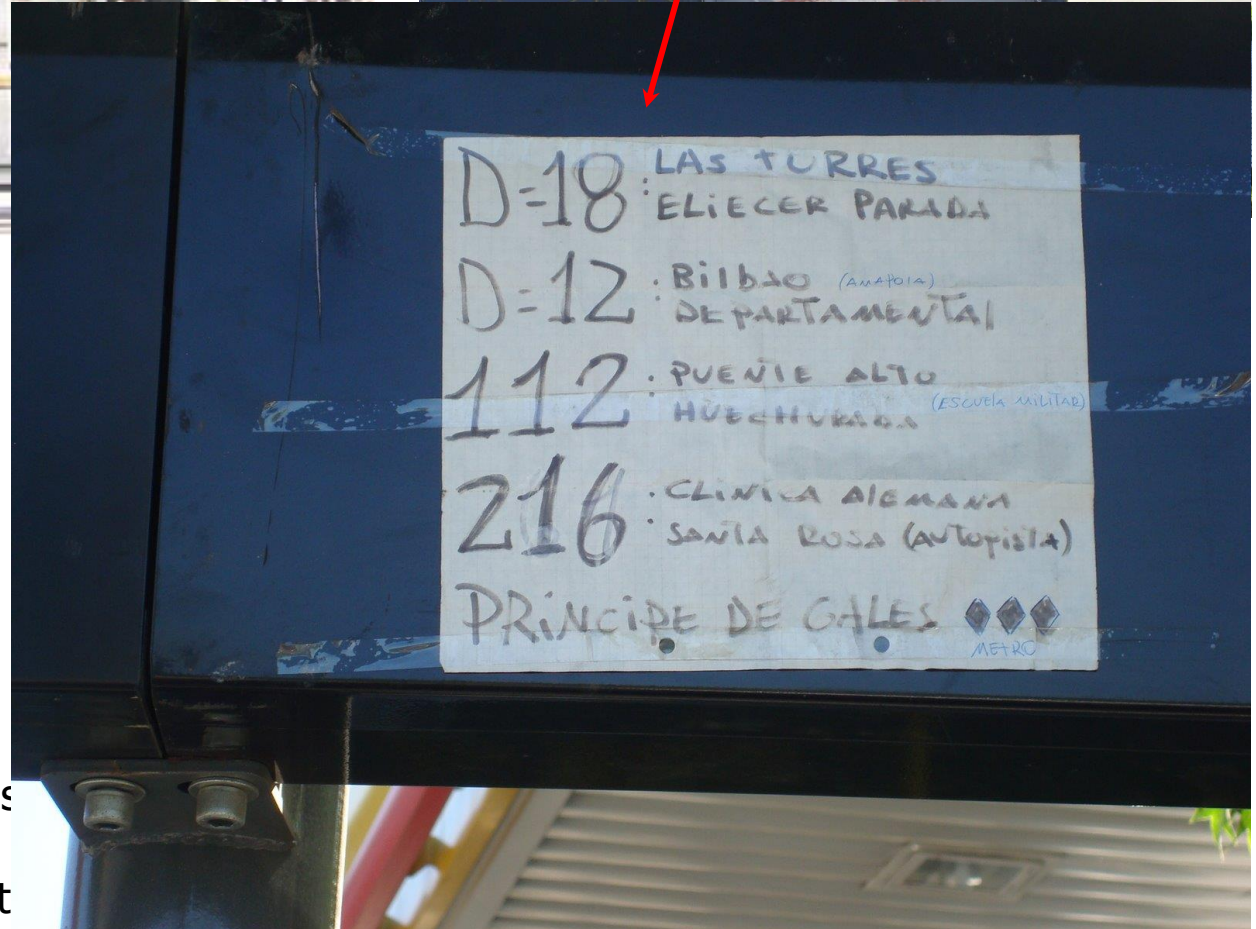 D=18 : LAS TURRES
ELiECER PARADA
D=12 : Bilbao (AMAPOLA)
DEPARTAMENTAl
112 : PUENTE ALTO
HUECHURABA (ESCUELA MILITAR)
216 : CLiNiCA AlEMANA
SANTA ROSA (AUTOPISTA)
PRiNCiPE DE GALES
METRO
s
t